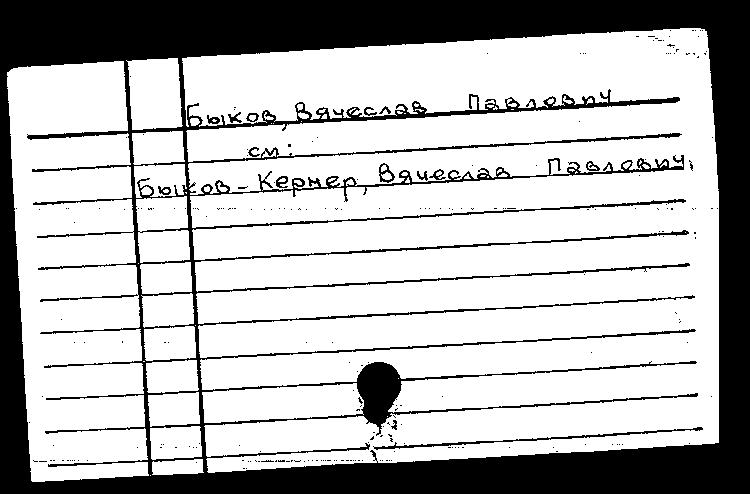 Быков, Вячеслав Павлович
см:
Быков-Кернер, Вячеслав Павлович.